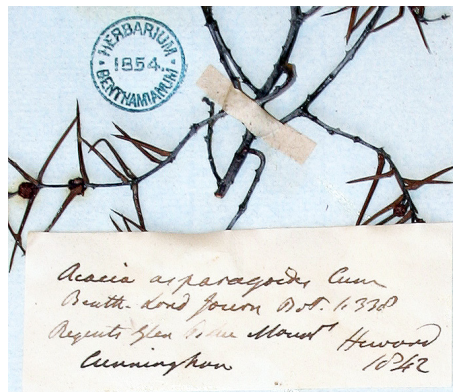 HERBARIUM
1854.
BENTHAMIANUM
Acacia asparagoides Cunn
Benth. Lond Journ Bot. 1.338
Regents Glen Blue Mount
Heward
1842
Cunningham